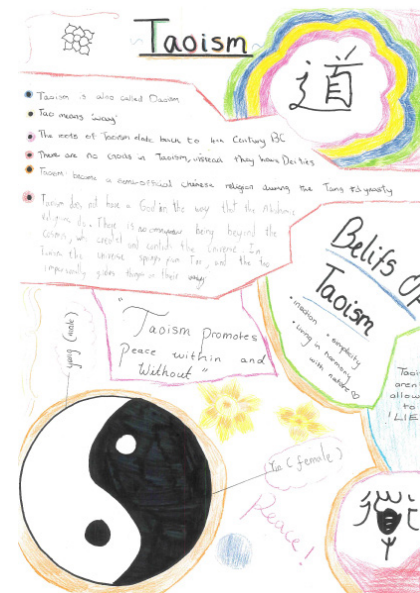 Taoism
道
Taoism is also called Daoism
Tao means 'way'
The roots of Taoism date back to 4th Century BC
There are no Gods in Taoism, instead they have Deities
Taoism became a semi-official chinese religion during the Tang dynasty
Taoism does not have a God in the way that the Abrahamic
Religions do. There is no being beyond the
cosmos, who created and controls the Universe. In
Taoism the universe springs from Tao, and the tao
impersonally guides things on their way.
Belifs Of
Taoism
inaction
simplicity
living in harmony
with nature
"Taoism promotes
Peace within and
Without"
yang (male)
Yin (female)
Peace!
Taoi
aren't
allow
to
'LIE